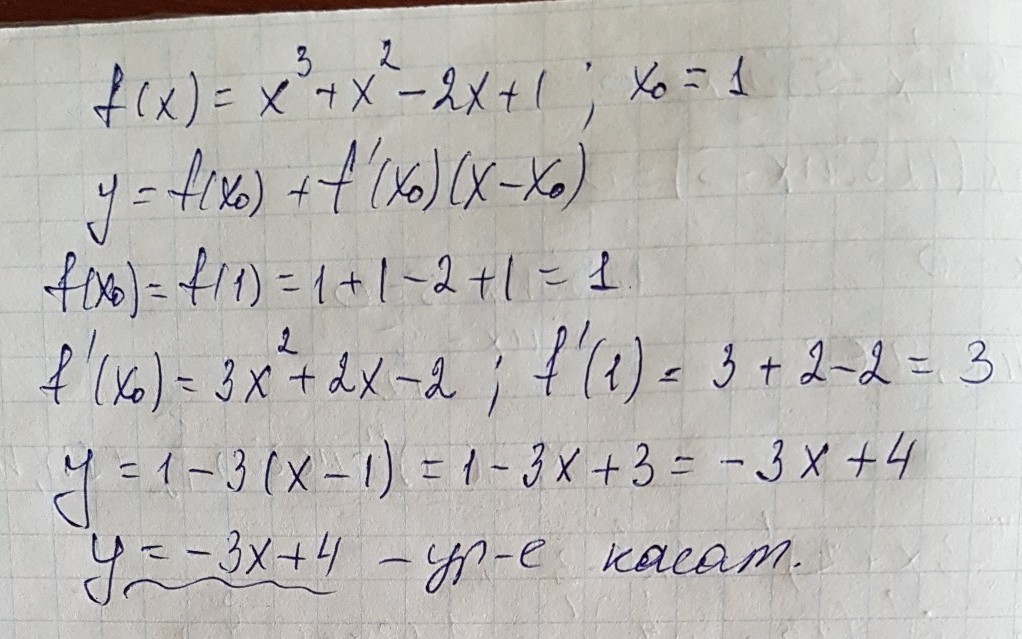 f(x) = x³ + x² - 2x + 1 ; x₀ = 1
y = f(x₀) + f'(x₀)(x - x₀)
f(x₀) = f(1) = 1 + 1 - 2 + 1 = 1
f'(x₀) = 3x² + 2x - 2 ; f'(1) = 3 + 2 - 2 = 3
y = 1 - 3(x - 1) = 1 - 3x + 3 = - 3x + 4
y = - 3x + 4 - ур-е касат.